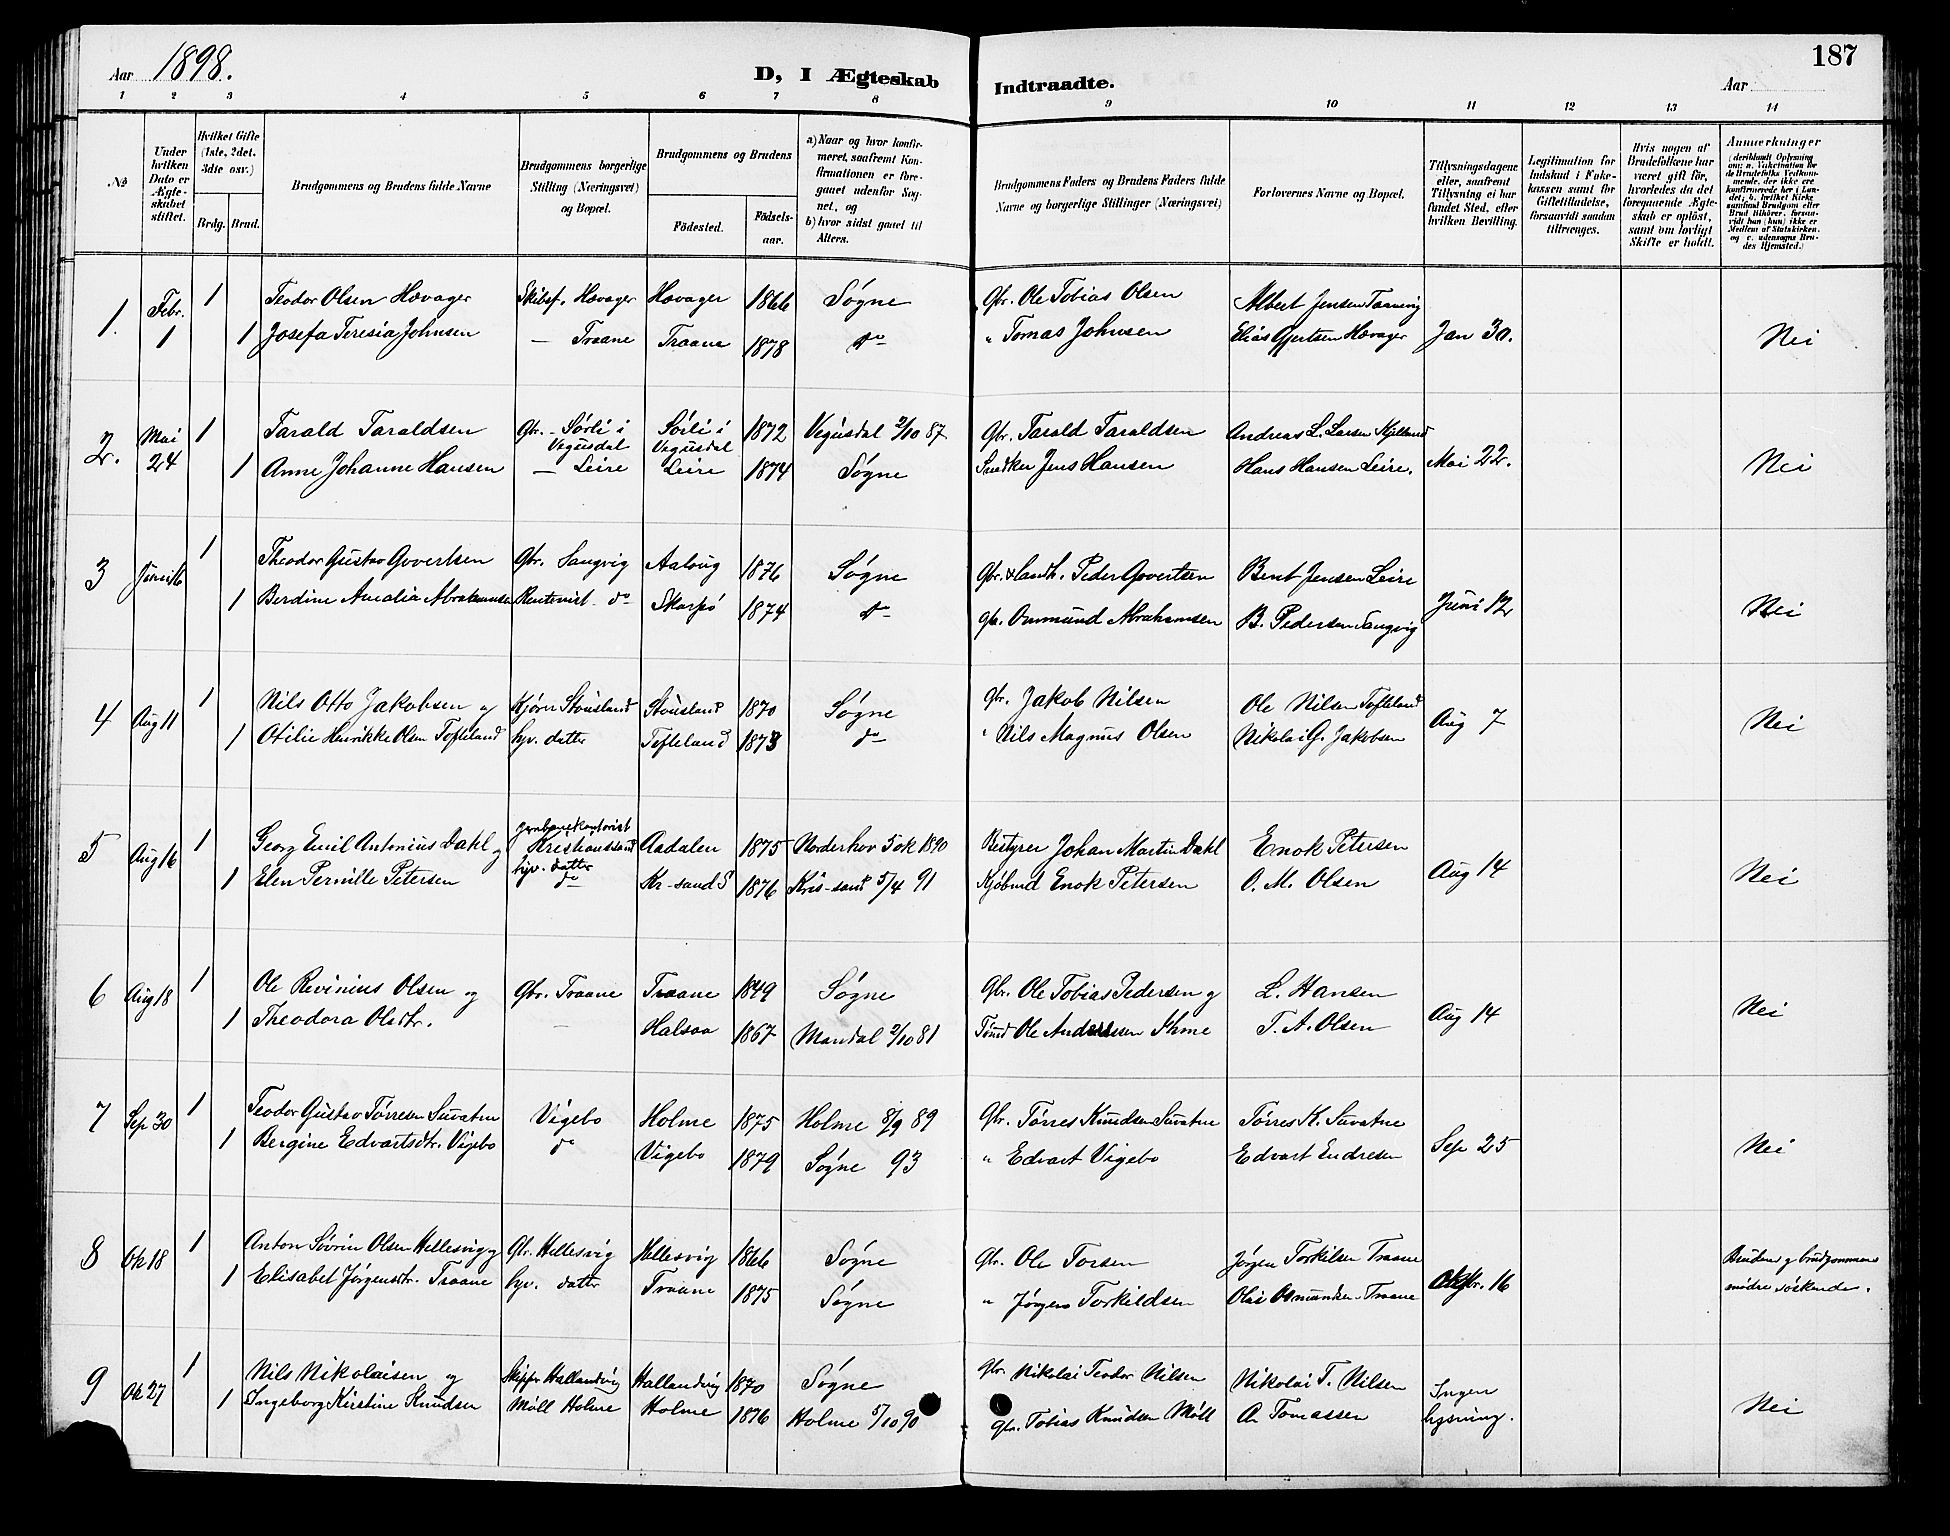 Aar 1898.
D, I Ægteskab Indtraadte.
Aar
187
1 2 3 4 5 6 7 8 9 10 11 12 13 14
№
Under hvilken Dato er Ægteskabet stiftet.
Hvilket Gifte (1ste, 2det, 3die osv.)
Brdg. Brud.
Brudgommens og Brudens fulde Navne
Brudgommens borgerlige Stilling (Næringsvei) og Bopæl.
Brudgommens og Brudens
Födested.
Födsels-aar.
a) Naar og hvor konfirmeret, saafremt Konfirmationen er foregaaet udenfor Sognet, og
b) hvor sidst gaaet til Alters.
Brudgommens Faders og Brudens Faders fulde Navne og borgerlige Stillinger (Næringsvei)
Forlovernes Navne og Bopæl.
Tillysningsdagene eller, saafremt Tillysning ei har fundet Sted, efter hvilken Bevilling.
Legitimation for Indskud i Enkekassen samt for Giftetilladelse, forsaavidt saadan tiltrænges.
Hvis nogen af Brudefolkene har været gift för, hvorledes da det foregaaende Ægteskab er oplöst, samt om lovligt Skifte er holdt.
Anmærkninger
1. Febr. 1 1 Teodor Olsen Hævager Skibsf. Hævager Hævager 1866 Søgne Gbr. Ole Tobias Olsen Albert Jensen Jan 30. Nei
1 Josefa Teresia Johnsen — Traane Traane 1878 do " Tomas Johnsen Elias Gjertsen Hævager
2. Mai 24 1 Tarald Taraldsen Gbr. Sørli i Vegusdal Sørli i Vegusdal 1872 Vegusdal 2/10 87 Gbr. Tarald Taraldsen Andreas L. Larsen Mai 22. Nei
1 Anne Johanne Hansen — Leire Leire 1874 Søgne Snedker Jens Hansen Hans Hansen Leire.
3 Juni 16 1 Theodor Gustav Govertsen Gbr. Langvig 1876 Søgne Gbr. & landh. Peder Govertsen Bent Jensen Leire Juni 12 Nei
1 Berdine Amalia Abrahamsen do Skarpö 1874 do Gbr. Ommund Abrahamsen B. Pedersen Langvig
4 Aug 11 1 Nils Otto Jakobsen og Stousland Stousland 1870 Søgne Gbr. Jakob Nilsen Ole Nilsen Tofteland Aug 7 Nei
1 Otilie Henrikke Olsen Tofteland hjv. datter Tofteland 1873 do " Nils Magnus Olsen Nikolai G. Jakobsen
5 Aug 16 1 Georg Emil Antonius Dahl og Kristianssand Aadalen 1875 Norderhov 5 ok 1890 Bestyrer Johan Martin Dahl Enok Petersen Aug 14 Nei
1 Elen Pernille Petersen hjv. datter do Kr-sand S 1876 Kris-sand 5/4 91 Kjöbmd Enok Petersen O. M. Olsen
6 Aug 18 1 Ole Revinius Olsen og Gbr. Traane Traane 1849 Søgne Gbr. Ole Tobias Pedersen og L. Hansen Aug 14 Nei
1 Theodora Olsdtr. — Halsaa 1867 Mandal 2/10 81 Ole Andersen T. A. Olsen
7 Sep 30 1 Teodor Gustav Tørresen Suvatne Vigebo Holme 1875 Holme 8/9 89 Gbr. Tørres Knudsen Suvatne Tørres K. Suvatne Sep 25 Nei
1 Bergine Edvartsdtr. Vigebo do Vigebo 1879 Søgne 93 " Edvart Vigebo Edvart Endresen
8 Ok 18 1 Anton Sövrin Olsen Hellesvig og Gbr. Hellesvig Hellesvig 1866 Søgne Gbr. Ole Torsen Jørgen Torkilsen Traane Oktbr. 16 Brudens og brudgommens mödre söskende.
1 Elisabet Jørgensdtr. Traane hjv. datter Traane 1875 Søgne " Jørgen Torkildsen Traane
9 Ok 27 1 Nils Nikolaisen og Skipper Hallandvig Hallandvig 1870 Søgne Gbr. Nikolai Teodor Nilsen Nikolai T. Nilsen Ingen lysning. Nei
1 Ingeborg Kirstine Knudsen Möll Holme Holme 1876 Holme 5/10 90 Gbr. Tobias Knudsen Möll A Tomassen